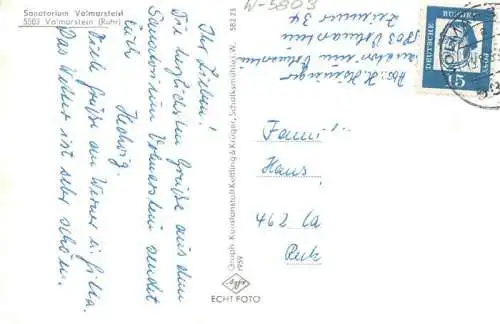 Sanatorium Volmarstein
5803 Volmarstein (Ruhr)
W-5803
Ihr Lieben!
Die herzlichsten Grüße aus dem
Sanatorium Volmarstein sendet
Euch Hedwig.
Viele Grüße an Werner u.
Das Wetter ist sehr schön.
Graph. Kunstanstalt Kettling & Krüger, Schalksmühle i. W. 582 25
1959
ECHT FOTO
Abs.: H.
Sanatorium Volmarstein
5803 Volmarstein
Zimmer 34
DEUTSCHE
BUNDESPOST
15
Familie
Hans
462